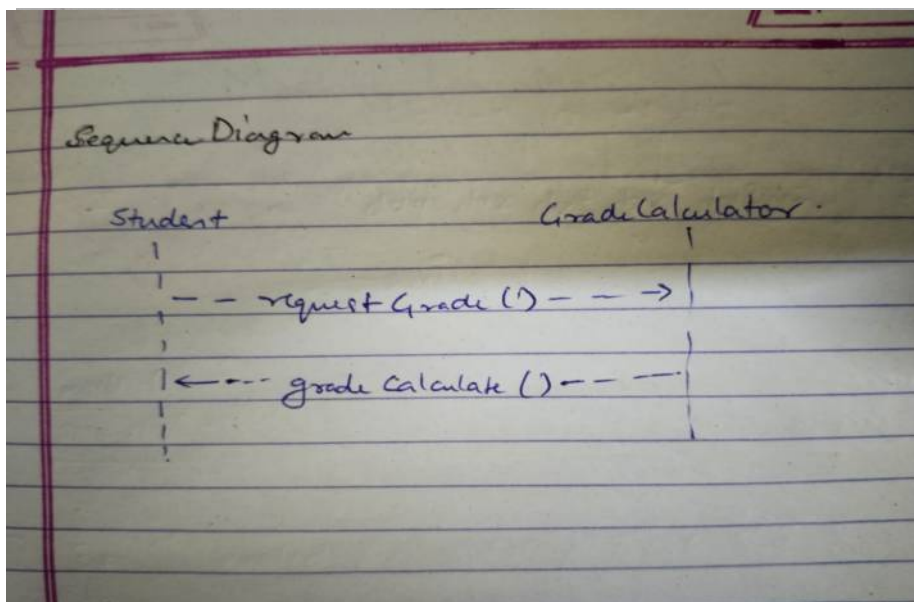 Sequence Diagram
Student GradeCalculator.
request Grade ()
grade Calculate ()